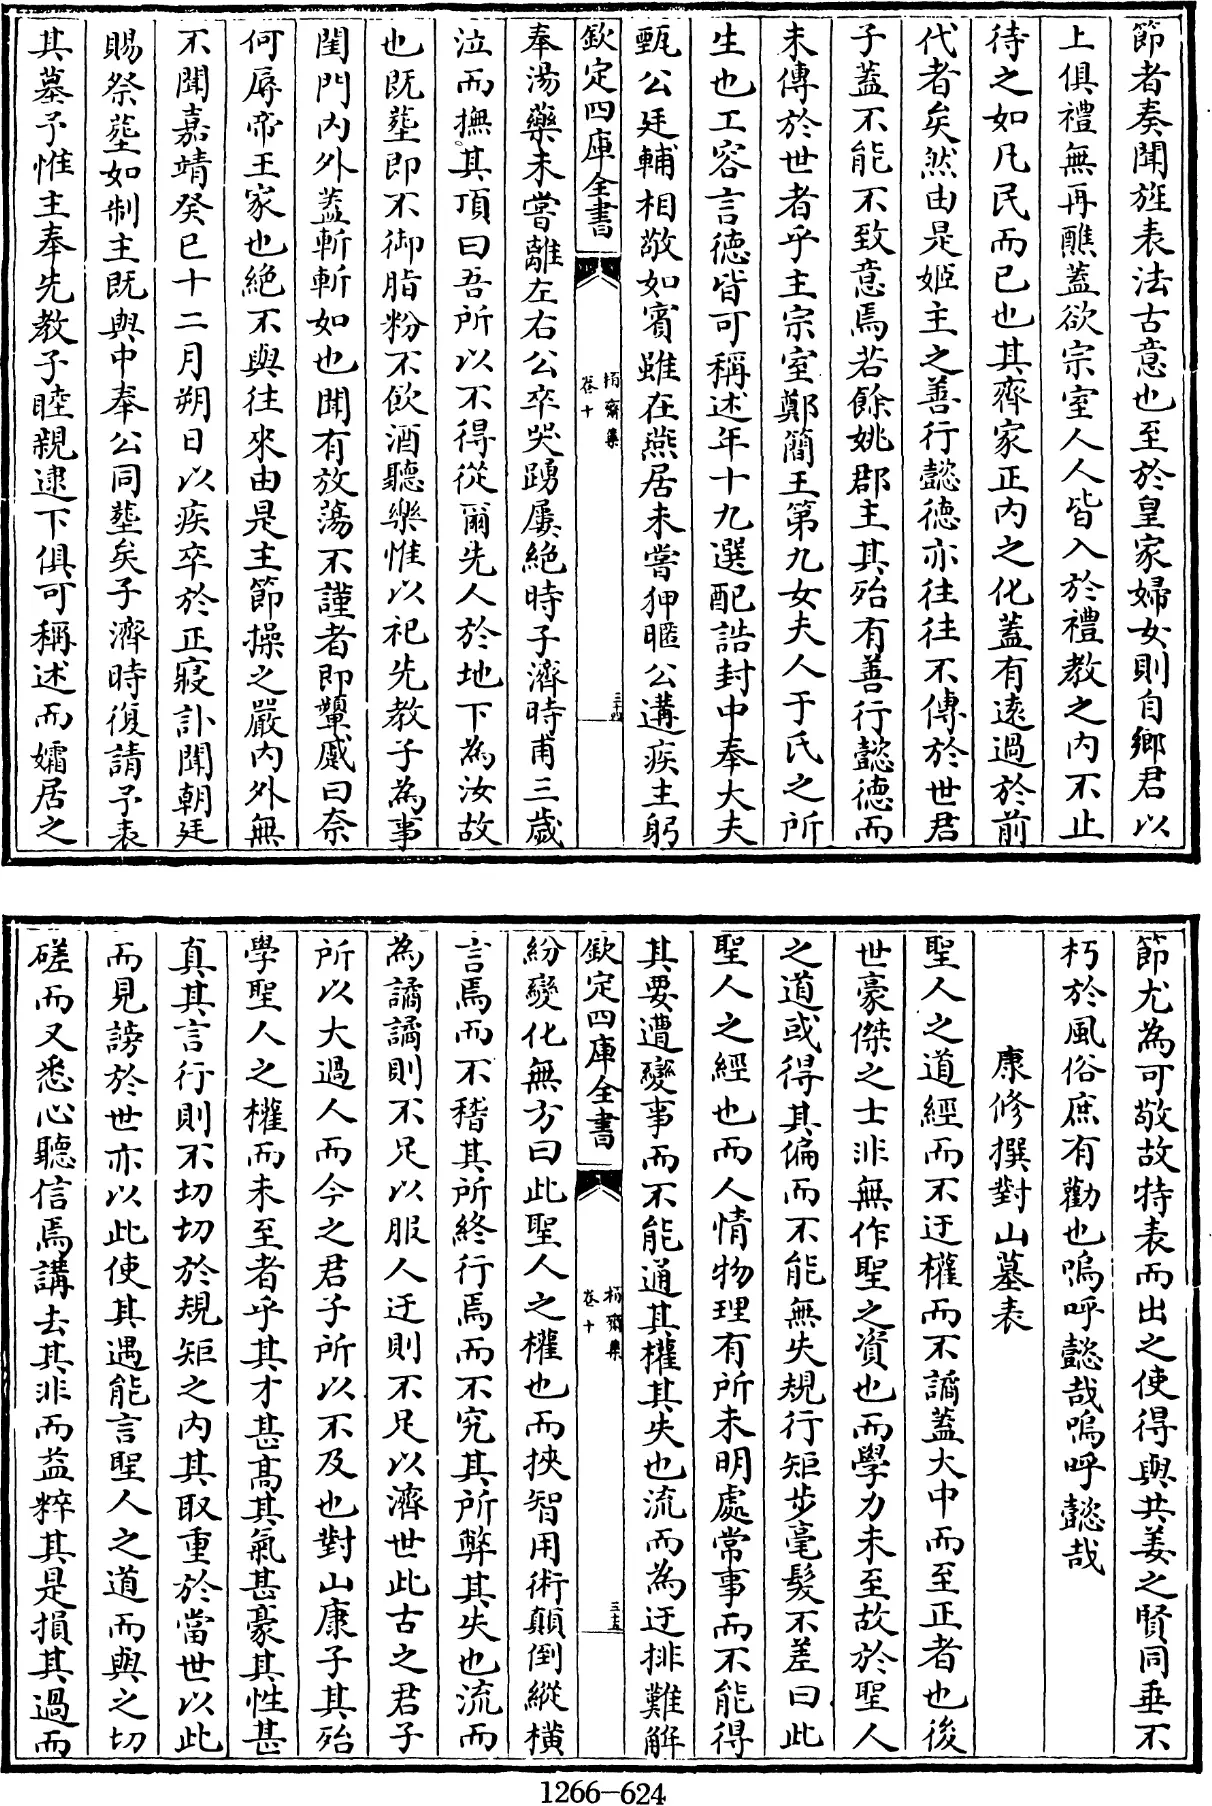 節者奏聞旌表法古意也至於皇家婦女則自鄉君以
上俱禮無再醮蓋欲宗室人人皆入於禮教之内不止
待之如凡民而已也其齊家正内之化蓋有遠過於前
代者矣然由是姬主之善行懿徳亦往往不傳於世君
子蓋不能不致意焉若餘姚郡主其殆有善行懿徳而
未傳於世者乎主宗室鄭簡王第九女夫人于氏之所
生也工容言徳皆可稱述年十九選配誥封中奉大夫
甄公廷輔相敬如賓雖在燕居未嘗狎暱公遘疾主躬
欽定四庫全書
栢齋集
卷十
三十四
奉湯藥未嘗離左右公卒哭踴屢絶時子濟時甫三歲
泣而撫其頂曰吾所以不得從爾先人於地下為汝故
也既塟即不御脂粉不飲酒聽樂惟以祀先教子為事
閨門内外蓋斬斬如也聞有放蕩不謹者即顰慼曰奈
何辱帝王家也絶不與往來由是主節操之嚴内外無
不聞嘉靖癸巳十二月朔日以疾卒於正寢訃聞朝廷
賜祭塟如制主既與中奉公同塟矣子濟時復請予表
其墓予惟主奉先教子睦親逮下俱可稱述而孀居之
節尤為可敬故特表而出之使得與共姜之賢同垂不
朽於風俗庶有勸也嗚呼懿哉嗚呼懿哉
康修撰對山墓表
聖人之道經而不迂權而不譎蓋大中而至正者也後
世豪傑之士非無作聖之資也而學力未至故於聖人
之道或得其偏而不能無失規行矩步毫髮不差曰此
聖人之經也而人情物理有所未明處常事而不能得
其要遭變事而不能通其權其失也流而為迂排難解
欽定四庫全書
栢齋集
卷十
三十五
紛變化無方曰此聖人之權也而挾智用術顛倒縱横
言焉而不稽其所終行焉而不究其所弊其失也流而
為譎譎則不足以服人迂則不足以濟世此古之君子
所以大過人而今之君子所以不及也對山康子其殆
學聖人之權而未至者乎其才甚髙其氣甚豪其性甚
真其言行則不切切於規矩之内其取重於當世以此
而見謗於世亦以此使其遇能言聖人之道而與之切
磋而又悉心聽信焉講去其非而益粹其是損其過而
1266-624